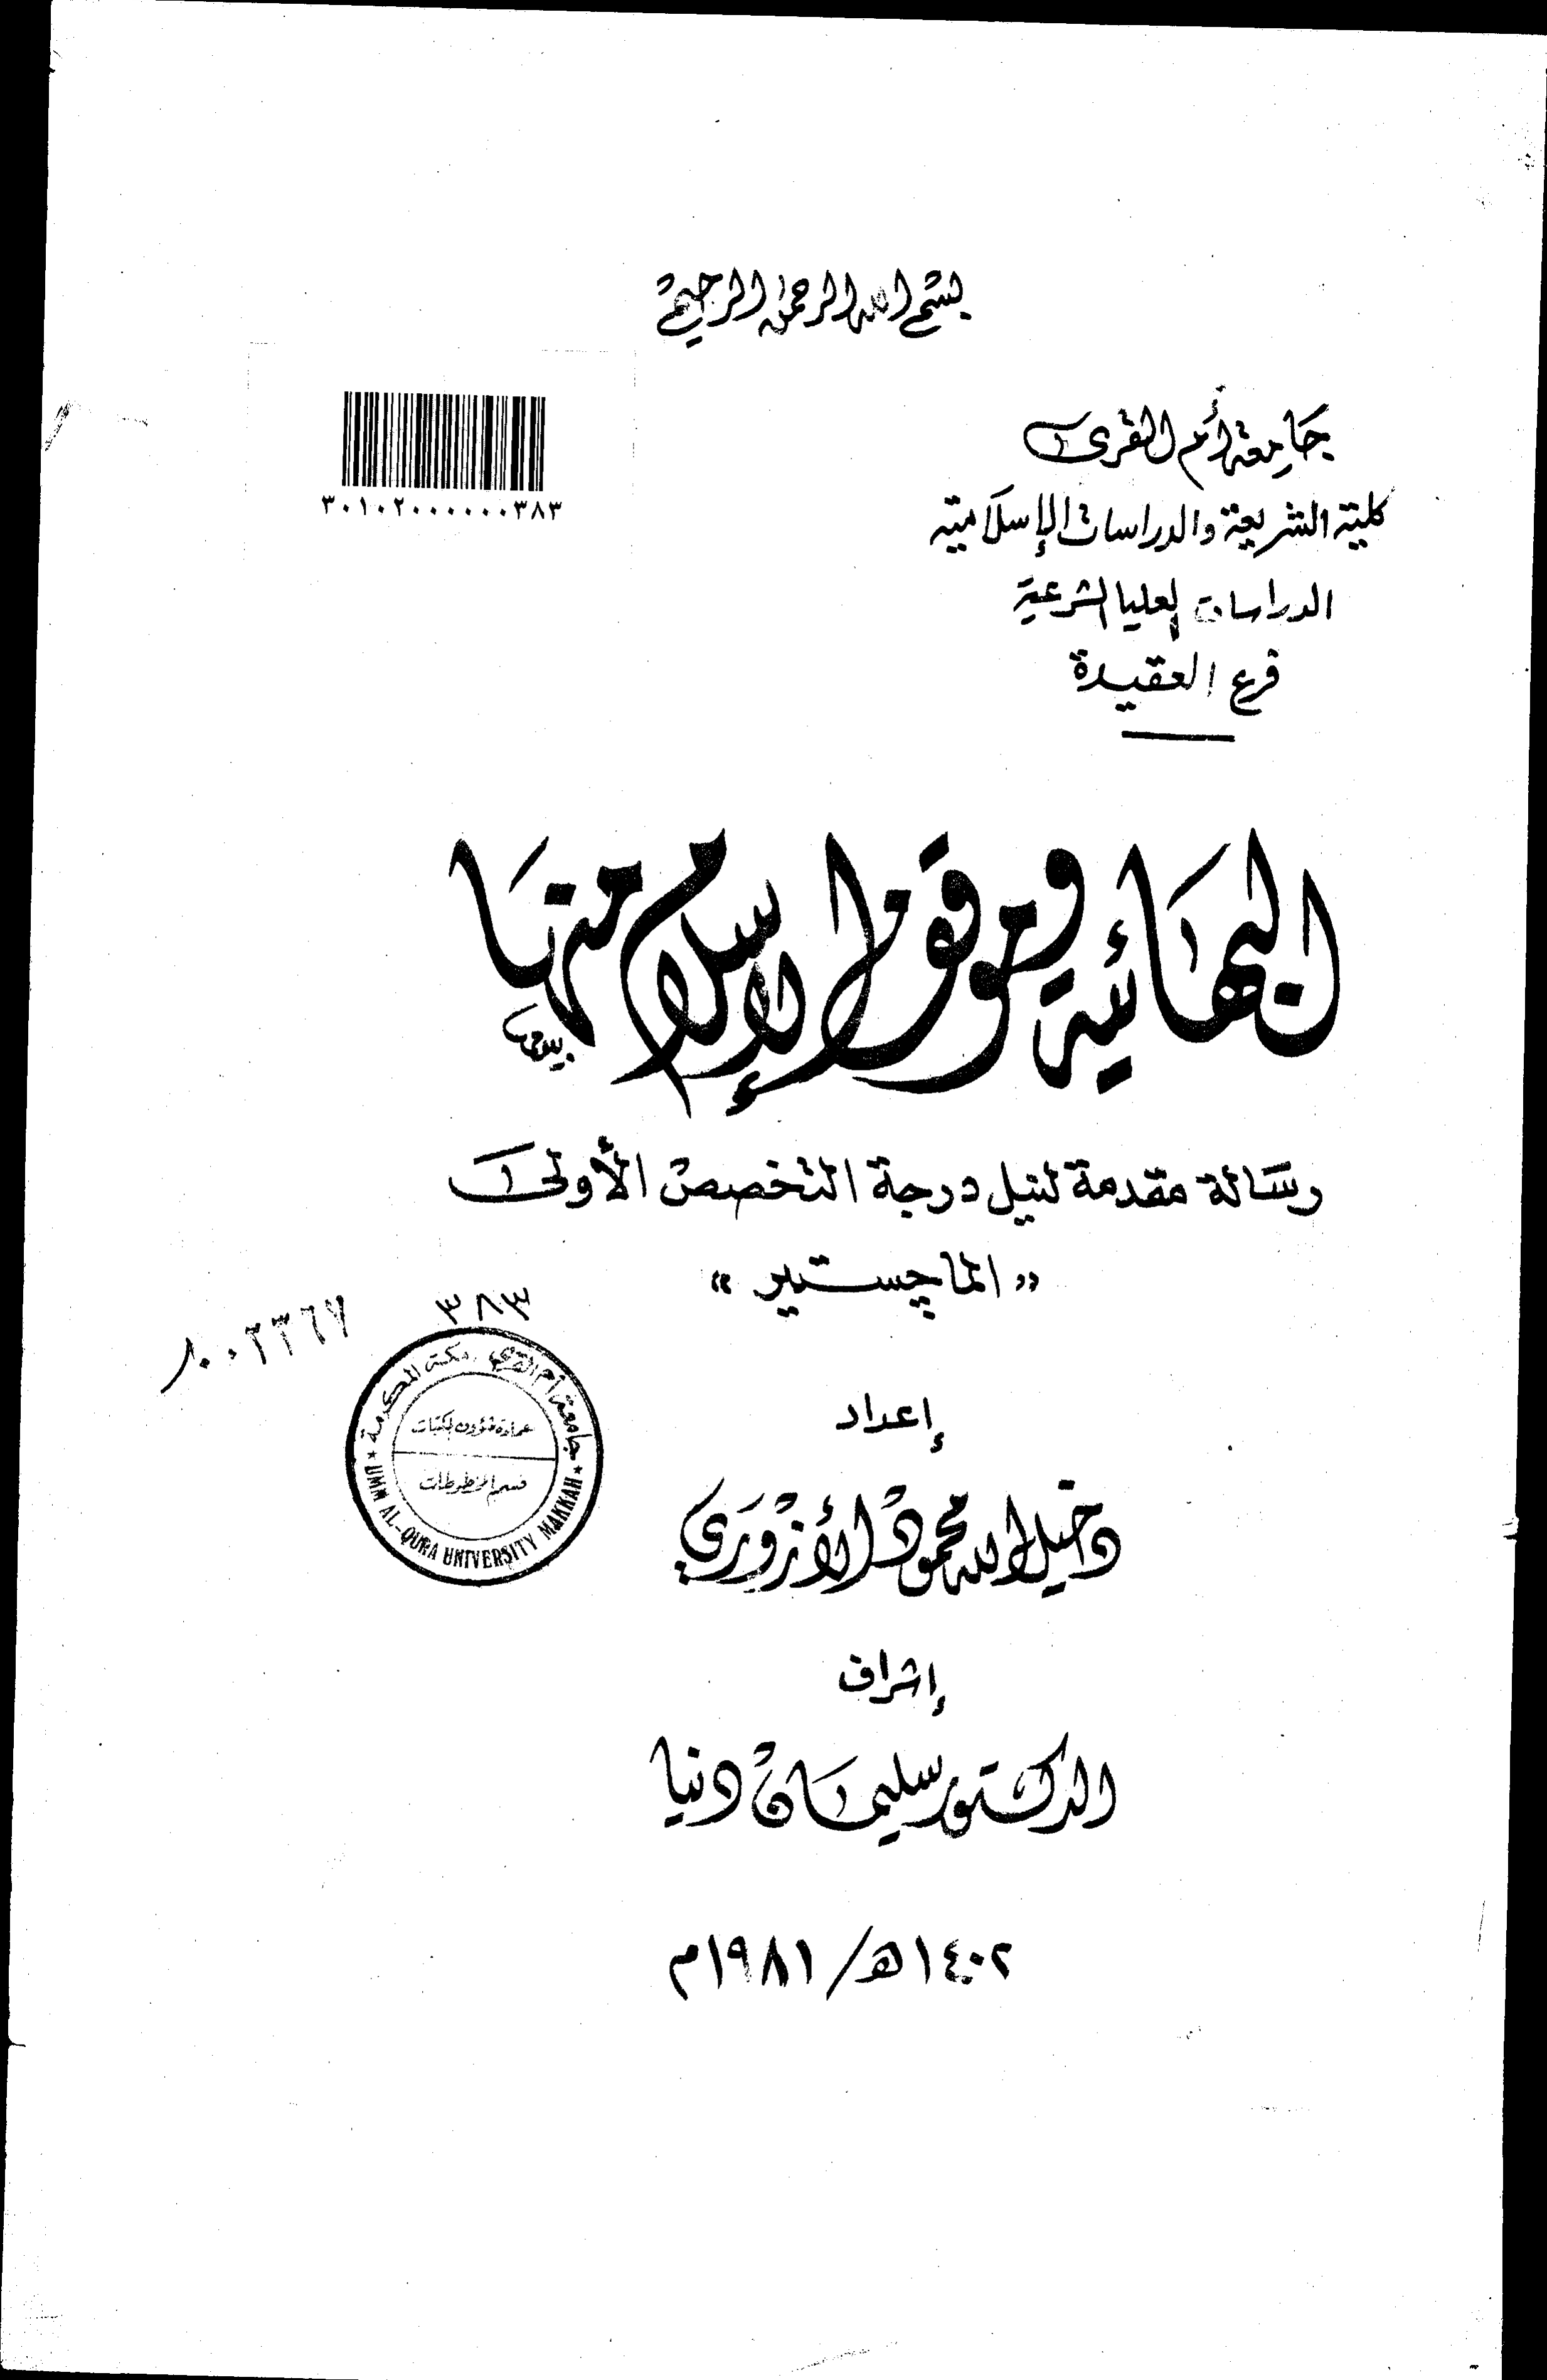 بسم الله الرحمن الرحيم
جامعة أم القرى
كلية الشريعة والدراسات الإسلامية
الدراسات العليا الشرعية
فرع العقيدة
٣٠١٠٢٠٠٠٠٠٠٣٨٣
البهائية وموقف الإسلام منها
رسالة مقدمة لنيل درجة التخصص الأولى
« الماجستير »
٣٨٣
جامعة أم القرى مكة المكرمة
عمادة شؤون المكتبات
قسم المخطوطات
UMM AL-QURA UNIVERSITY MAKKAH
إعداد
دخيل الله محمود الأزوري
إشراف
الدكتور سليمان دنيا
١٤٠٢هـ/ ١٩٨١م